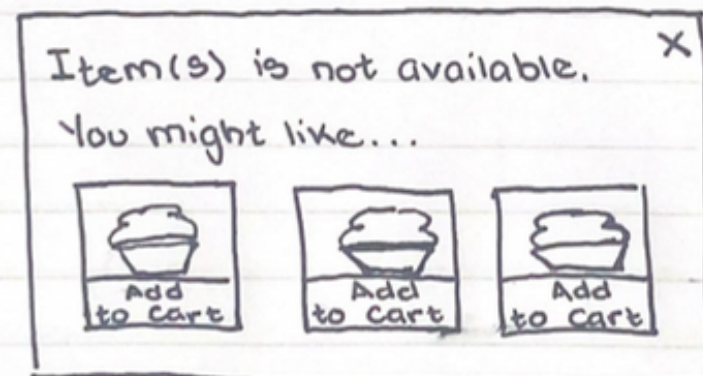 Item(s) is not available. X
You might like...
Add to Cart
Add to Cart
Add to Cart